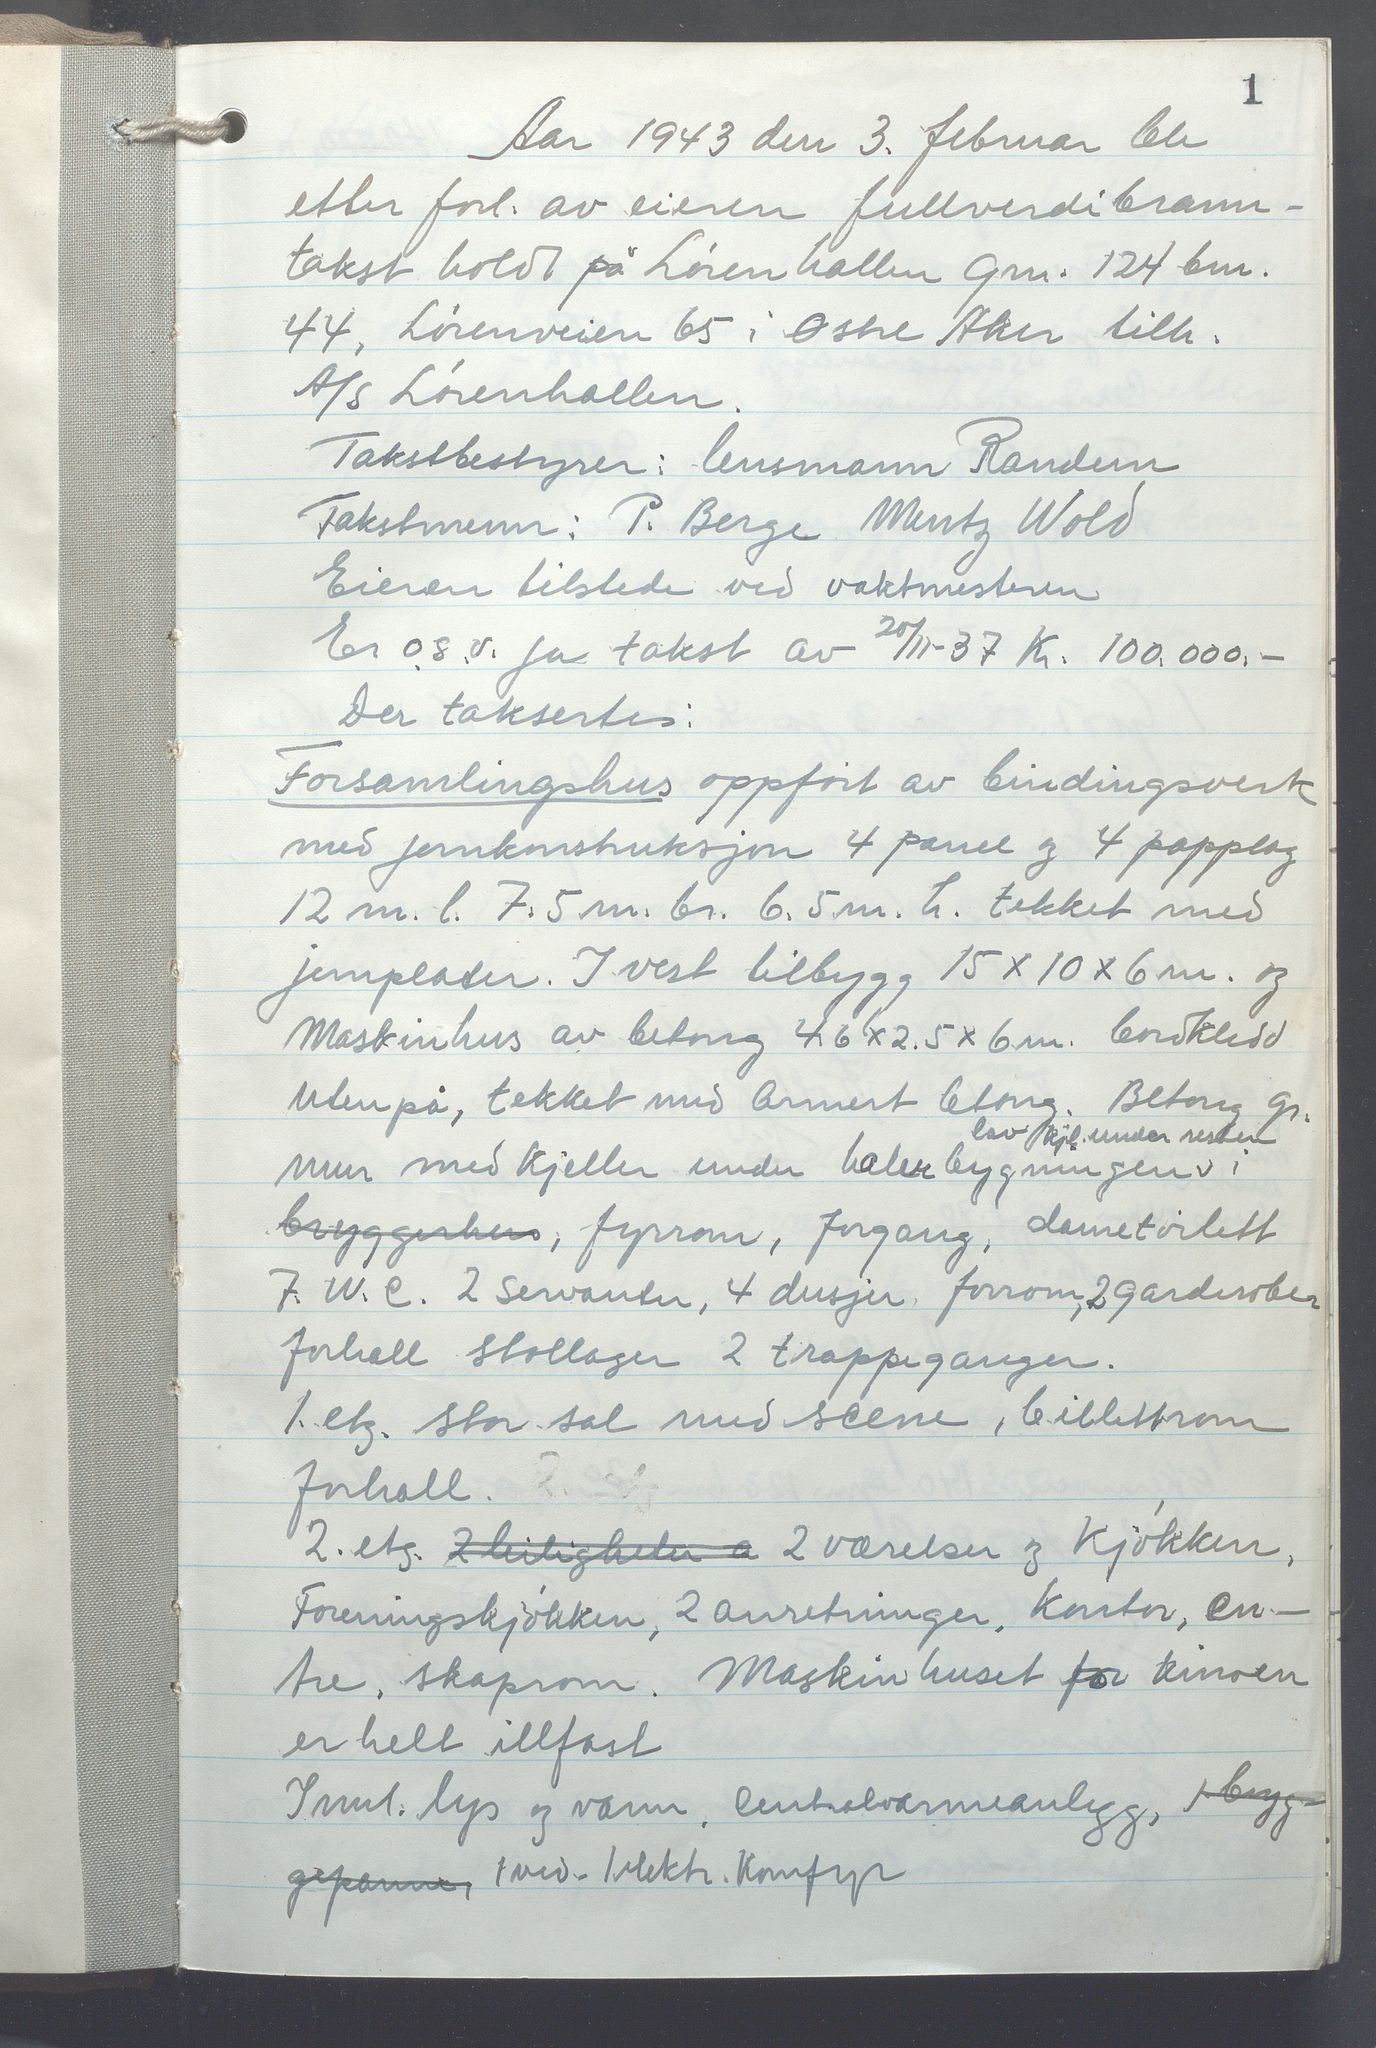 1
Aar 1943 den 3. februar ble
etter forl. av eieren fullverdibrann-
takst holdt på Lörenhallen Gnr. 124 bnr.
44, Lörenveien 65 i Østre Aker tilh.
A/s Lörenhallen.
Takstbestyrer: lensmann Randem
Takstmenn: P. Berge Mentz Wold
Eieren tilstede ved vaktmesteren
Er o.s.v. ja takst av 20/11-37 Kr. 100.000.-
Der taksertes:
Forsamlingshus oppfört av bindingsverk
med jernkonstruksjon 4 panel og 4 papplag
12 m. l. 7.5 m. br. 6.5 m. h. tekket med
jernplater. I vest tilbygg 15 x 10 x 6 m. og
Maskinhus av betong 4.6 x 2.5 x 6 m. bordkledd
utenpå, tekket med armert betong. Betong gr.
lav kjl. under resten
mur med kjeller under halve bygningen v i
bryggerhus, fyrrom, forgang, dametoilett
7. W. C. 2 servanter, 4 dusjer forrom, 2 garderober
forhall stollager 2 trappeganger.
1. etg. stor sal med scene, billettrom
forhall.
2. etg. 2 leiligheter a 2 værelser og kjökken,
Foreningskjökken, 2 anretninger, kontor, en-
tre, skaprom. Maskinhuset for kinoen
er helt illfast
Innl. lys og vann, centralvarmeanlegg, 1 bryg-
gepanne, 1 ved- 1 elektr. komfyr